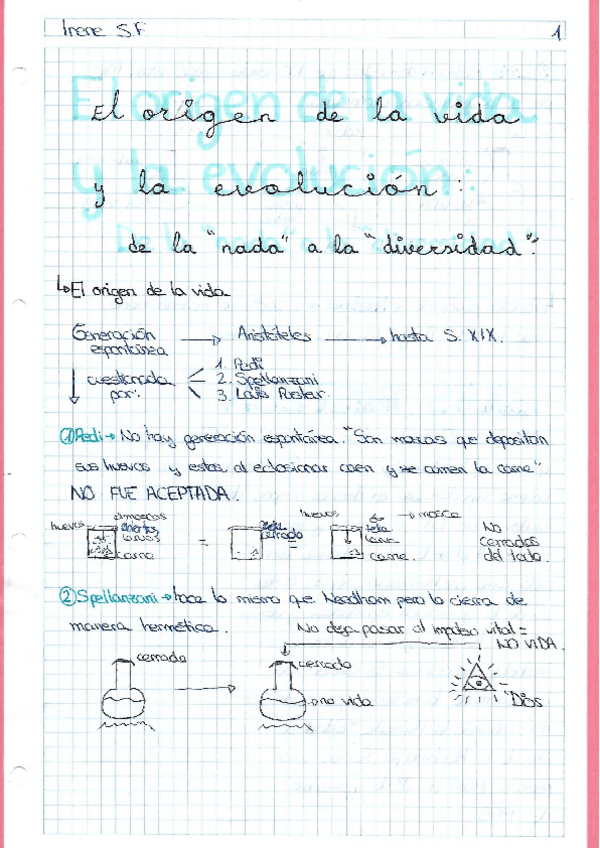 Irene S.F 1
El origen de la vida
y la evolución:
de la "nada" a la "diversidad".
↳ El origen de la vida
Generación espontánea → Aristóteles → hasta S. XIX.
cuestionada por:
1. Redi
2. Spellanzani
3. Louis Pasteur
① Redi → No hay generación espontánea. "Son moscas que depositan
sus huevos y estos al eclosionar caen y se comen la carne"
NO FUE ACEPTADA.
huevos moscas abiertos larvas carne
= cerrado =
huevos → mosca tela carne
No cerrados del todo.
② Spellanzani → hace lo mismo que Needham pero lo cierra de
manera hermética.
No deja pasar al impulso vital =
NO VIDA.
cerrado
cerrado
no vida
"Dios